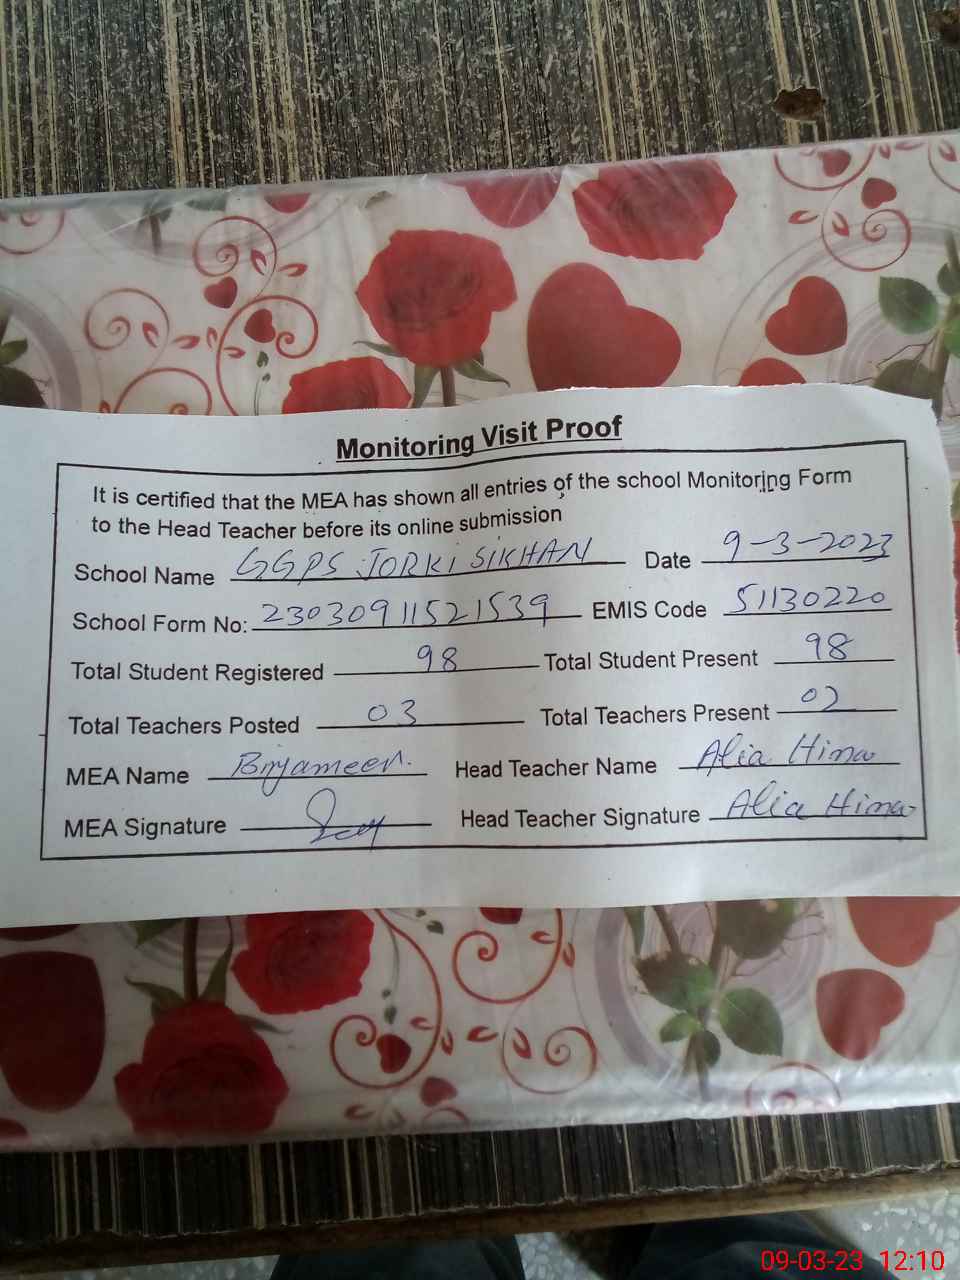 Monitoring Visit Proof
It is certified that the MEA has shown all entries of the school Monitoring Form
to the Head Teacher before its online submission
School Name GGPS JORKI SIKHAN Date 9-3-2023
School Form No: 23030911521539 EMIS Code 51130220
Total Student Registered 98 Total Student Present 98
Total Teachers Posted 03 Total Teachers Present 02
MEA Name Head Teacher Name Alia Hima
MEA Signature Head Teacher Signature Alia Hima
09-03-23 12:10